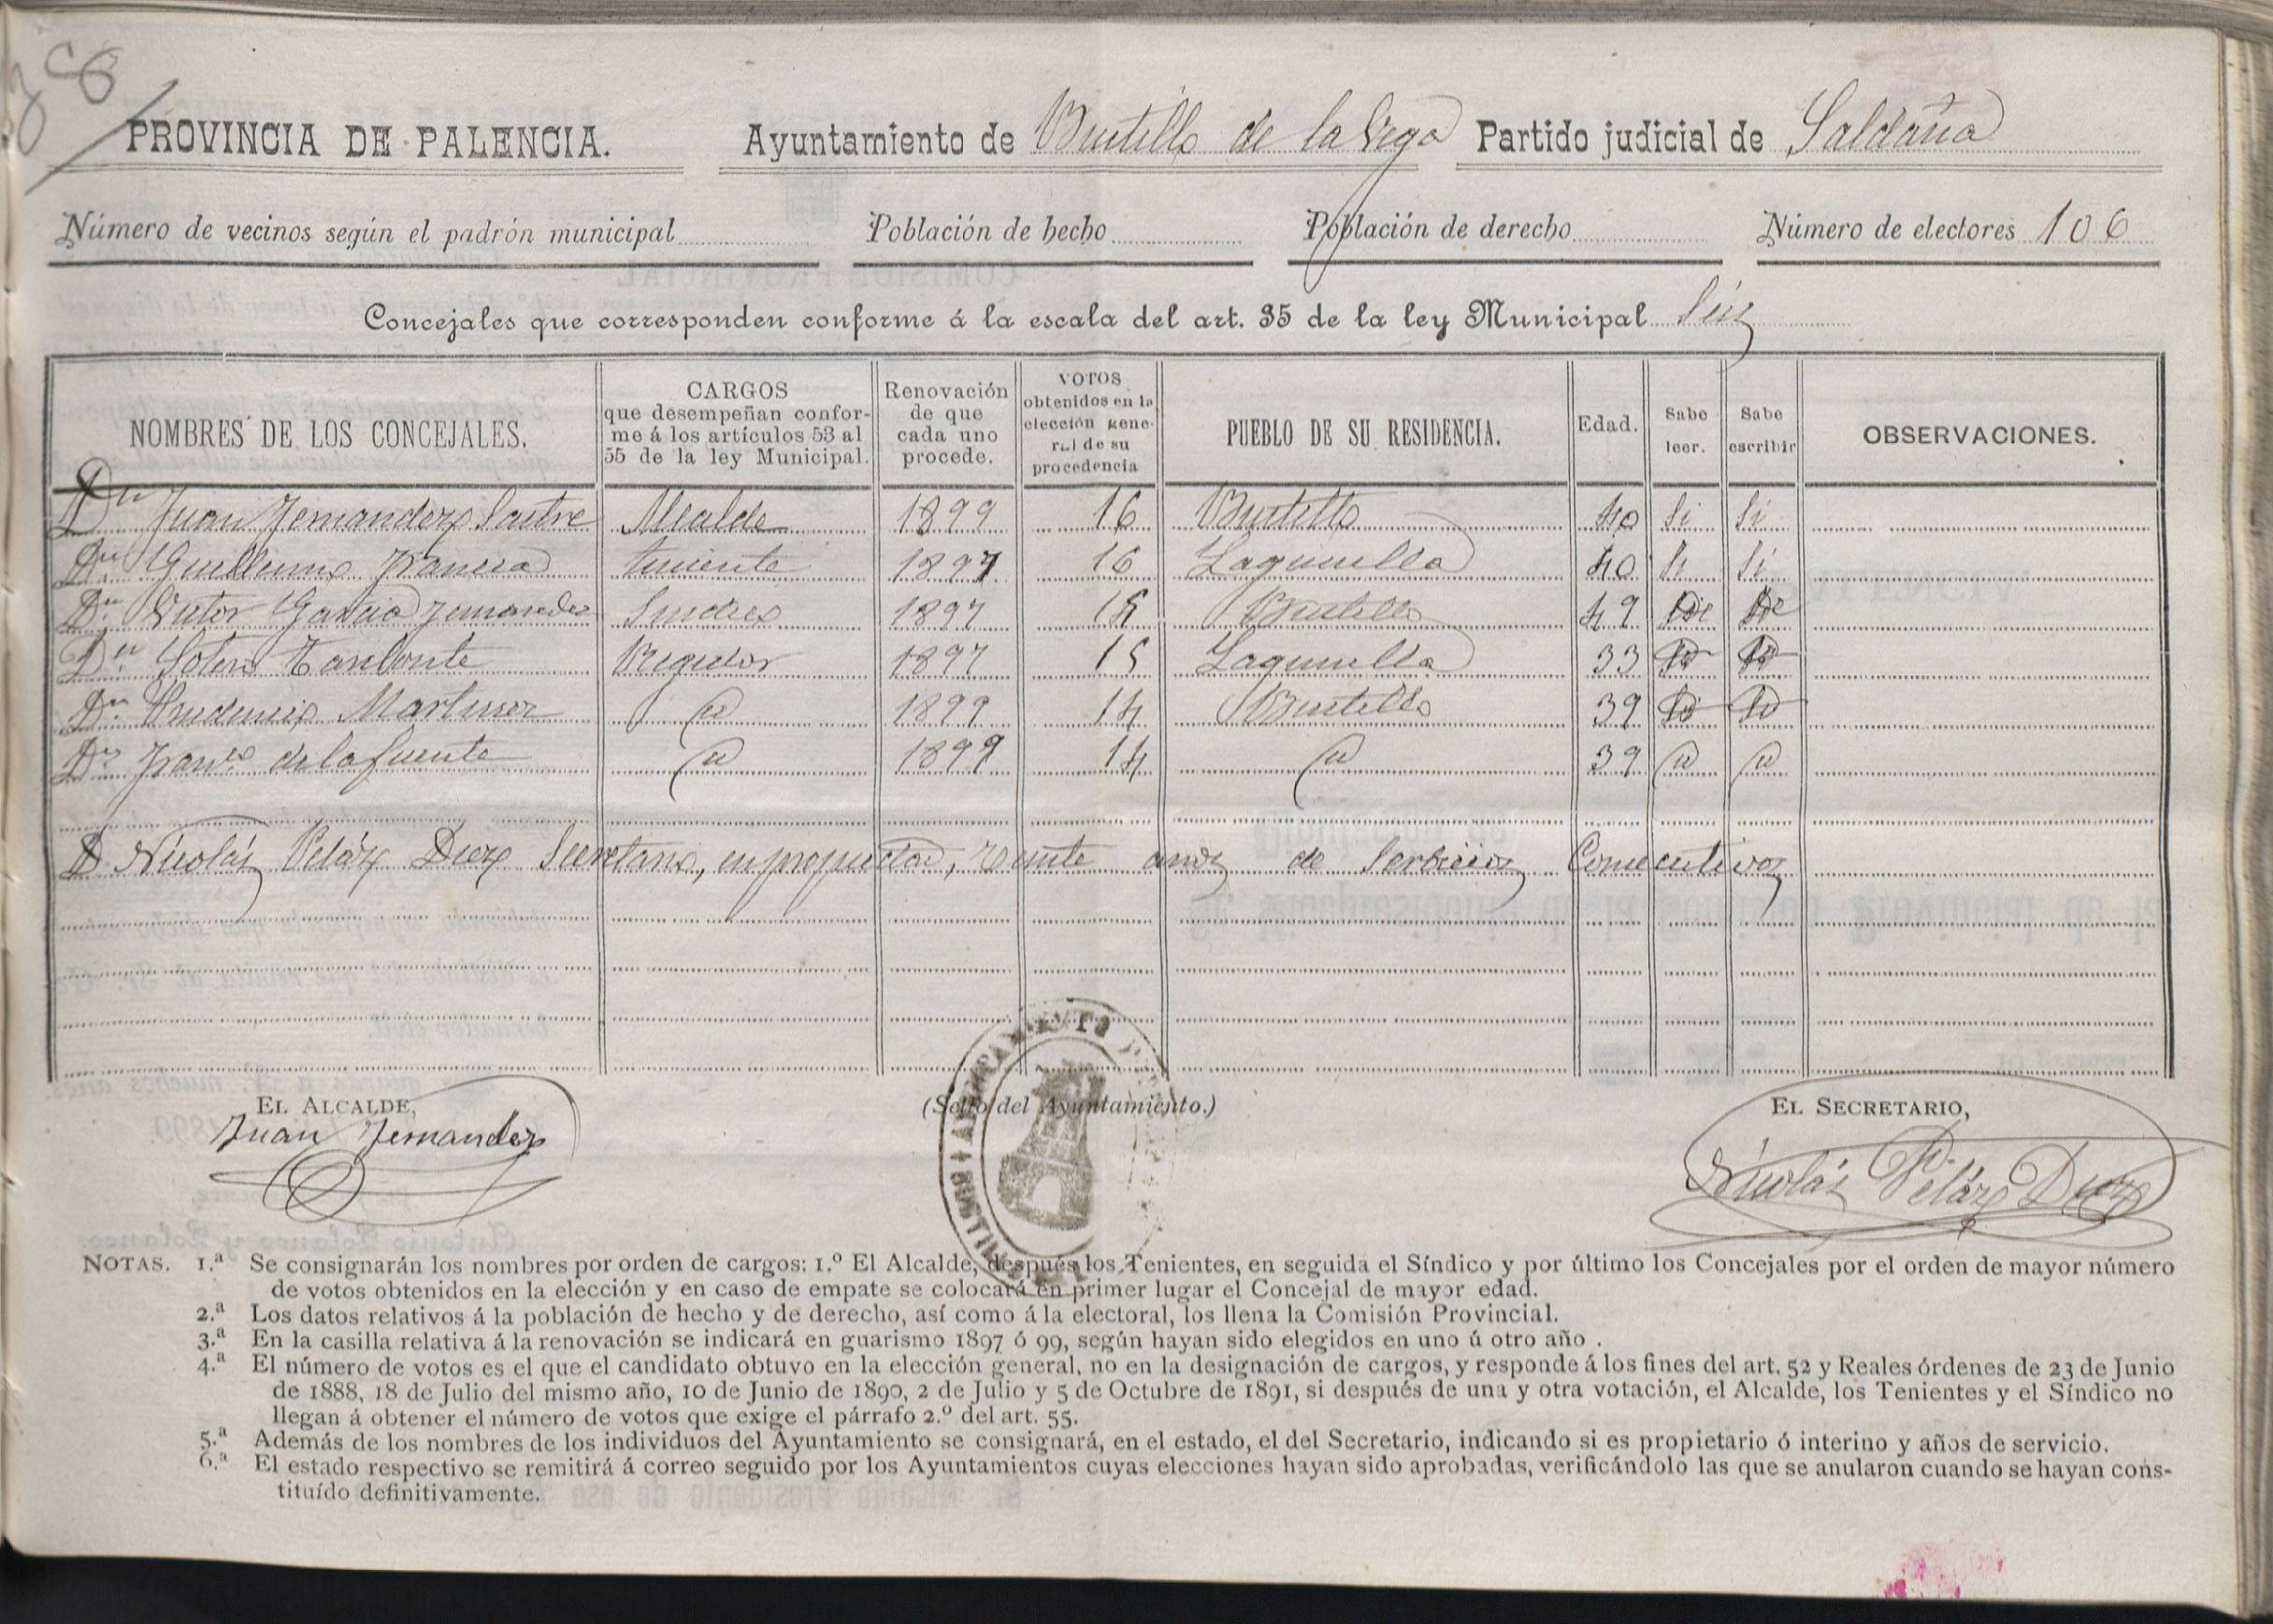 PROVINCIA DE PALENCIA. Ayuntamiento de Bustillo de la Vega Partido judicial de Saldaña
Número de vecinos según el padrón municipal Población de hecho Población de derecho Número de electores 106
Concejales que corresponden conforme á la escala del art. 35 de la ley Municipal Seis
NOMBRES DE LOS CONCEJALES. CARGOS que desempeñan conforme á los artículos 53 al 55 de la ley Municipal. Renovación de que cada uno procede. VOTOS obtenidos en la elección general de su procedencia PUEBLO DE SU RESIDENCIA. Edad. Sabe leer. Sabe escribir OBSERVACIONES.
Dn Juan Fernandez Sastre Alcalde 1899 16 Bustillo 40 Si Si
Dn Guillermo Francia teniente 1897 16 Lagunilla 40 Si Si
Dn Victor Garcia Fernandez Sindico 1897 Bustillo 49
Dn Sotero Regidor 1897 15 Lagunilla 33
Dn Prudencio Martinez id 1899 14 Bustillo 39 id id
Dn Franco de la fuente id 1899 14 id 39 id id
D Nicolás Peláz Diez Secretario, en propiedad, veinte anos de Serbicios Consecutivos
EL ALCALDE, (Sello del Ayuntamiento.) EL SECRETARIO,
Juan Fernandez Nicolás Peláz Diez
AYUNTAMIENTO
NOTAS. 1.ª Se consignarán los nombres por orden de cargos: 1.º El Alcalde, después los Tenientes, en seguida el Síndico y por último los Concejales por el orden de mayor número
de votos obtenidos en la elección y en caso de empate se colocará en primer lugar el Concejal de mayor edad.
2.ª Los datos relativos á la población de hecho y de derecho, así como á la electoral, los llena la Comisión Provincial.
3.ª En la casilla relativa á la renovación se indicará en guarismo 1897 ó 99, según hayan sido elegidos en uno ú otro año.
4.ª El número de votos es el que el candidato obtuvo en la elección general, no en la designación de cargos, y responde á los fines del art. 52 y Reales órdenes de 23 de Junio
de 1888, 18 de Julio del mismo año, 10 de Junio de 1890, 2 de Julio y 5 de Octubre de 1891, si después de una y otra votación, el Alcalde, los Tenientes y el Síndico no
llegan á obtener el número de votos que exige el párrafo 2.º del art. 55.
5.ª Además de los nombres de los individuos del Ayuntamiento se consignará, en el estado, el del Secretario, indicando si es propietario ó interino y años de servicio.
6.ª El estado respectivo se remitirá á correo seguido por los Ayuntamientos cuyas elecciones hayan sido aprobadas, verificándolo las que se anularon cuando se hayan cons-
tituído definitivamente.